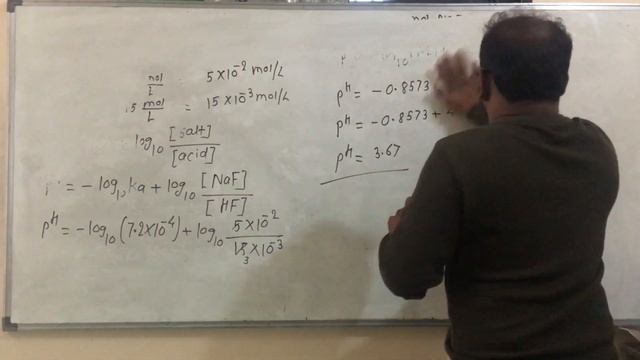 mol/L = 5 × 10⁻² mol/L
.5 mol/L = 15 × 10⁻³ mol/L
log₁₀ [salt]/[acid]
= -log₁₀ ka + log₁₀ [NaF]/[HF]
pH = -log₁₀ (7.2×10⁻⁴) + log₁₀ 5 × 10⁻²/15 3 × 10⁻³
pH = -0.8573
pH = -0.8573 +
pH = 3.67